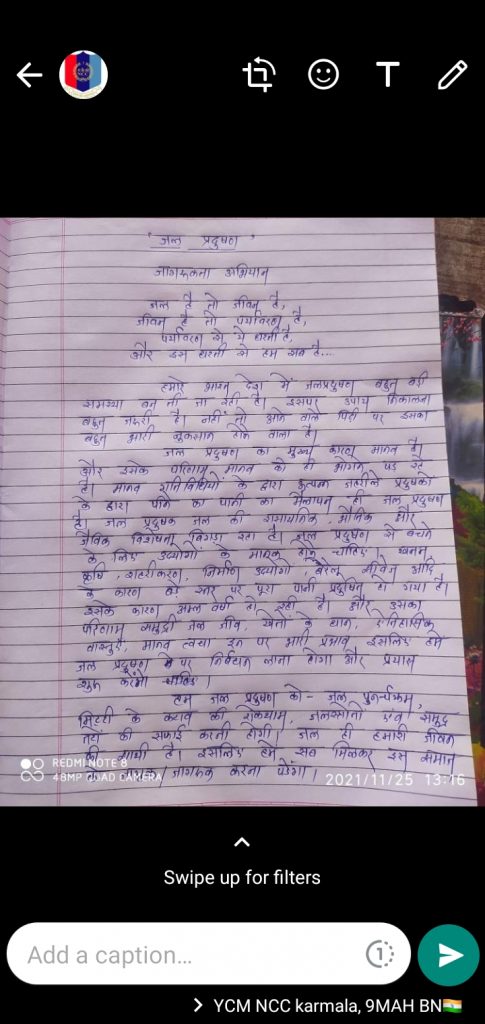 YCM
NCC
T
' जल प्रदुषण '
जागरूकता अभियान
जल है तो जीवन है,
जीवन है तो पर्यावरण है,
पर्यावरण से ये धरती है,
और इस धरती से हम सब है...
हमारे भारत देश में जलप्रदुषण बहुत बड़ी
समस्या बन ती जा रही है। इसपर उपाय निकालना
बहुत जरूरी है। नहीं तो आने वाले पिढी पर इसका
बहुत भारी नुकसान होने वाला है।
जल प्रदुषण का मुख्य कारण मानव है।
और इसके परिणाम मानव को ही भोगने पड़ रहे
है। मानव गतिविधियों के द्वारा उत्पन्न जहरीले प्रदुषको
के द्वारा पीने का पानी का मैलापन ही जल प्रदुषण
है। जल प्रदुषक जल की रासायनिक, भौतिक और
जैविक विशेषता बिगाड़ रहा है। जल प्रदुषण से बचने
के लिए उद्योगों के मानक होने चाहिए।
कृषि, शहरीकरण, निर्माण उद्योगो, घरेलू सीवेज आदि
के कारण बड़े स्तर पर पूरा पानी प्रदुषित हो गया है।
इसके कारण अम्ल वर्षा हो रही है। और उसका
परिणाम समुद्री जल जीव, खेतो के धान, ऐतिहासिक
वास्तुए, मानव त्वचा इन पर भारी प्रभाव इसलिए हमे
जल प्रदुषण पर निर्बंधन लाना होगा और प्रयास
शुरू करना चाहिए।
हम जल प्रदुषण को - जल पुनर्चक्रण,
मिट्टी के कटाव की रोकथाम, जलस्रोतो एवं समुद्र
तटों की सफाई करनी होगी। जल ही हमारी जीवन
की साथी है। इसलिए हमे सब मिलकर इस समाज
जागरूक करना पडेगा।
REDMI NOTE 8
48MP QUAD CAMERA
2021/11/25 13:16
Swipe up for filters
Add a caption...
1
YCM NCC karmala, 9MAH BN🇮🇳